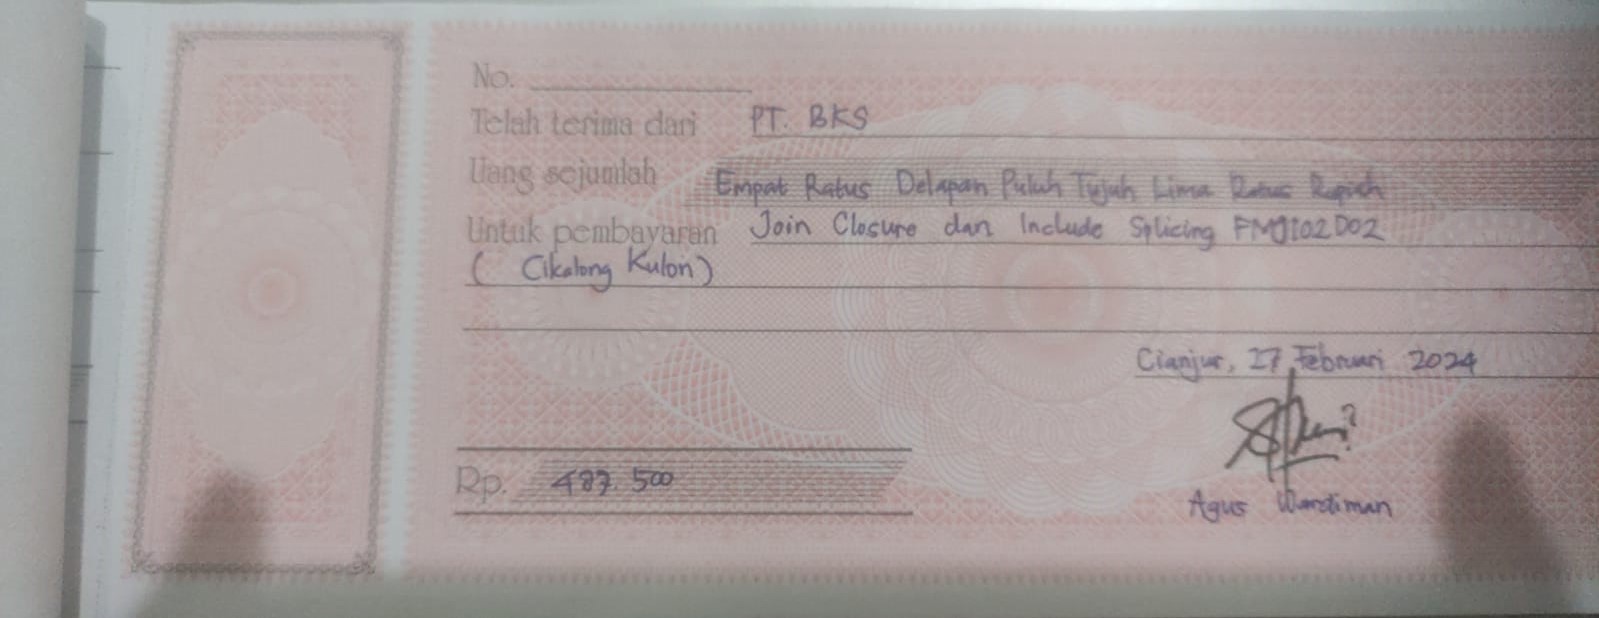 No.
Telah terima dari PT. BKS
Uang sejumlah Empat Ratus Delapan Puluh Tujuh Lima Ratus Rupiah
Untuk pembayaran Join Closure dan Include Splicing
( Cikalong Kulon )
Cianjur, 27 Februari 2024
Rp. 487.500
Agus